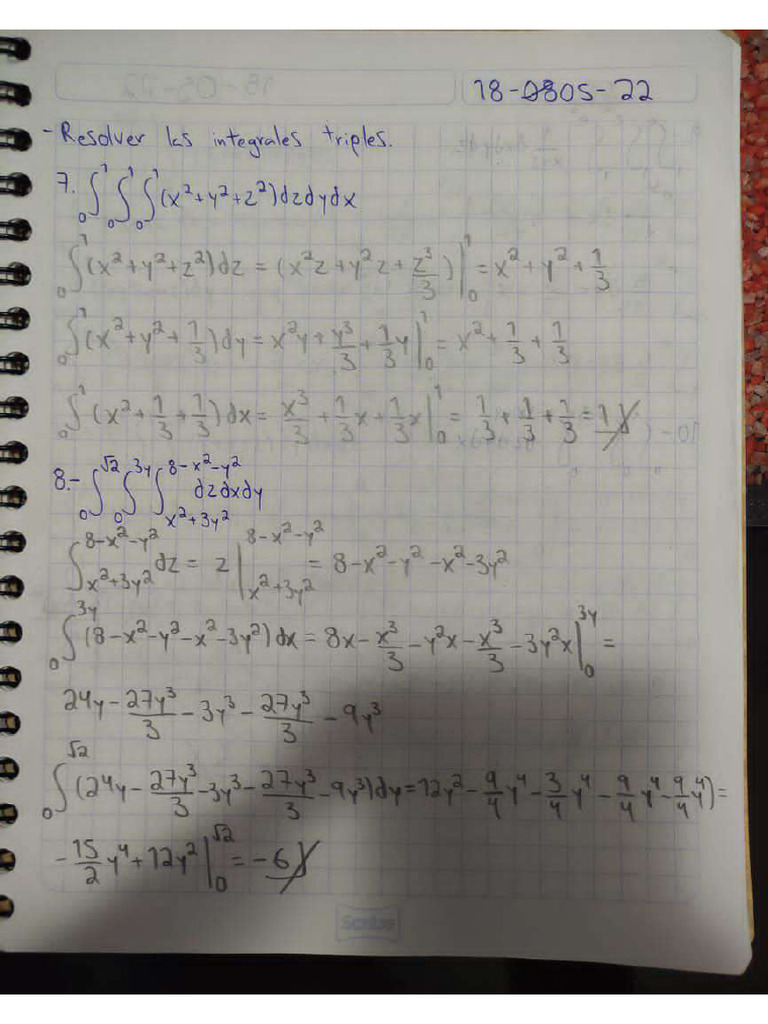 18-0805-22
- Resolver las integrales triples.
7. ∫₀¹ ∫₀¹ ∫₀¹ (x²+y²+z²)dzdydx
∫₀¹ (x²+y²+z²)dz = (x²z+y²z+z³/3)|₀¹ = x²+y²+1/3
∫₀¹ (x²+y²+1/3)dy = x²y+y³/3+1/3y|₀¹ = x²+1/3+1/3
∫₀¹ (x²+1/3+1/3)dx = x³/3+1/3x+1/3x|₀¹ = 1/3+1/3+1/3=1//
8.- ∫₀^√2 ∫₀^3y ∫_{x²+3y²}^{8-x²-y²} dzdxdy
∫_{x²+3y²}^{8-x²-y²} dz = z|_{x²+3y²}^{8-x²-y²} = 8-x²-y²-x²-3y²
∫₀^3y (8-x²-y²-x²-3y²)dx = 8x-x³/3-y²x-x³/3-3y²x|₀^3y =
24y-27y³/3-3y³-27y³/3-9y³
∫₀^√2 (24y-27y³/3-3y³-27y³/3-9y³)dy=12y²-9/4y⁴-3/4y⁴-9/4y⁴-9/4y⁴)=
-15/2y⁴+12y²|₀^√2 = -6//
Scribe